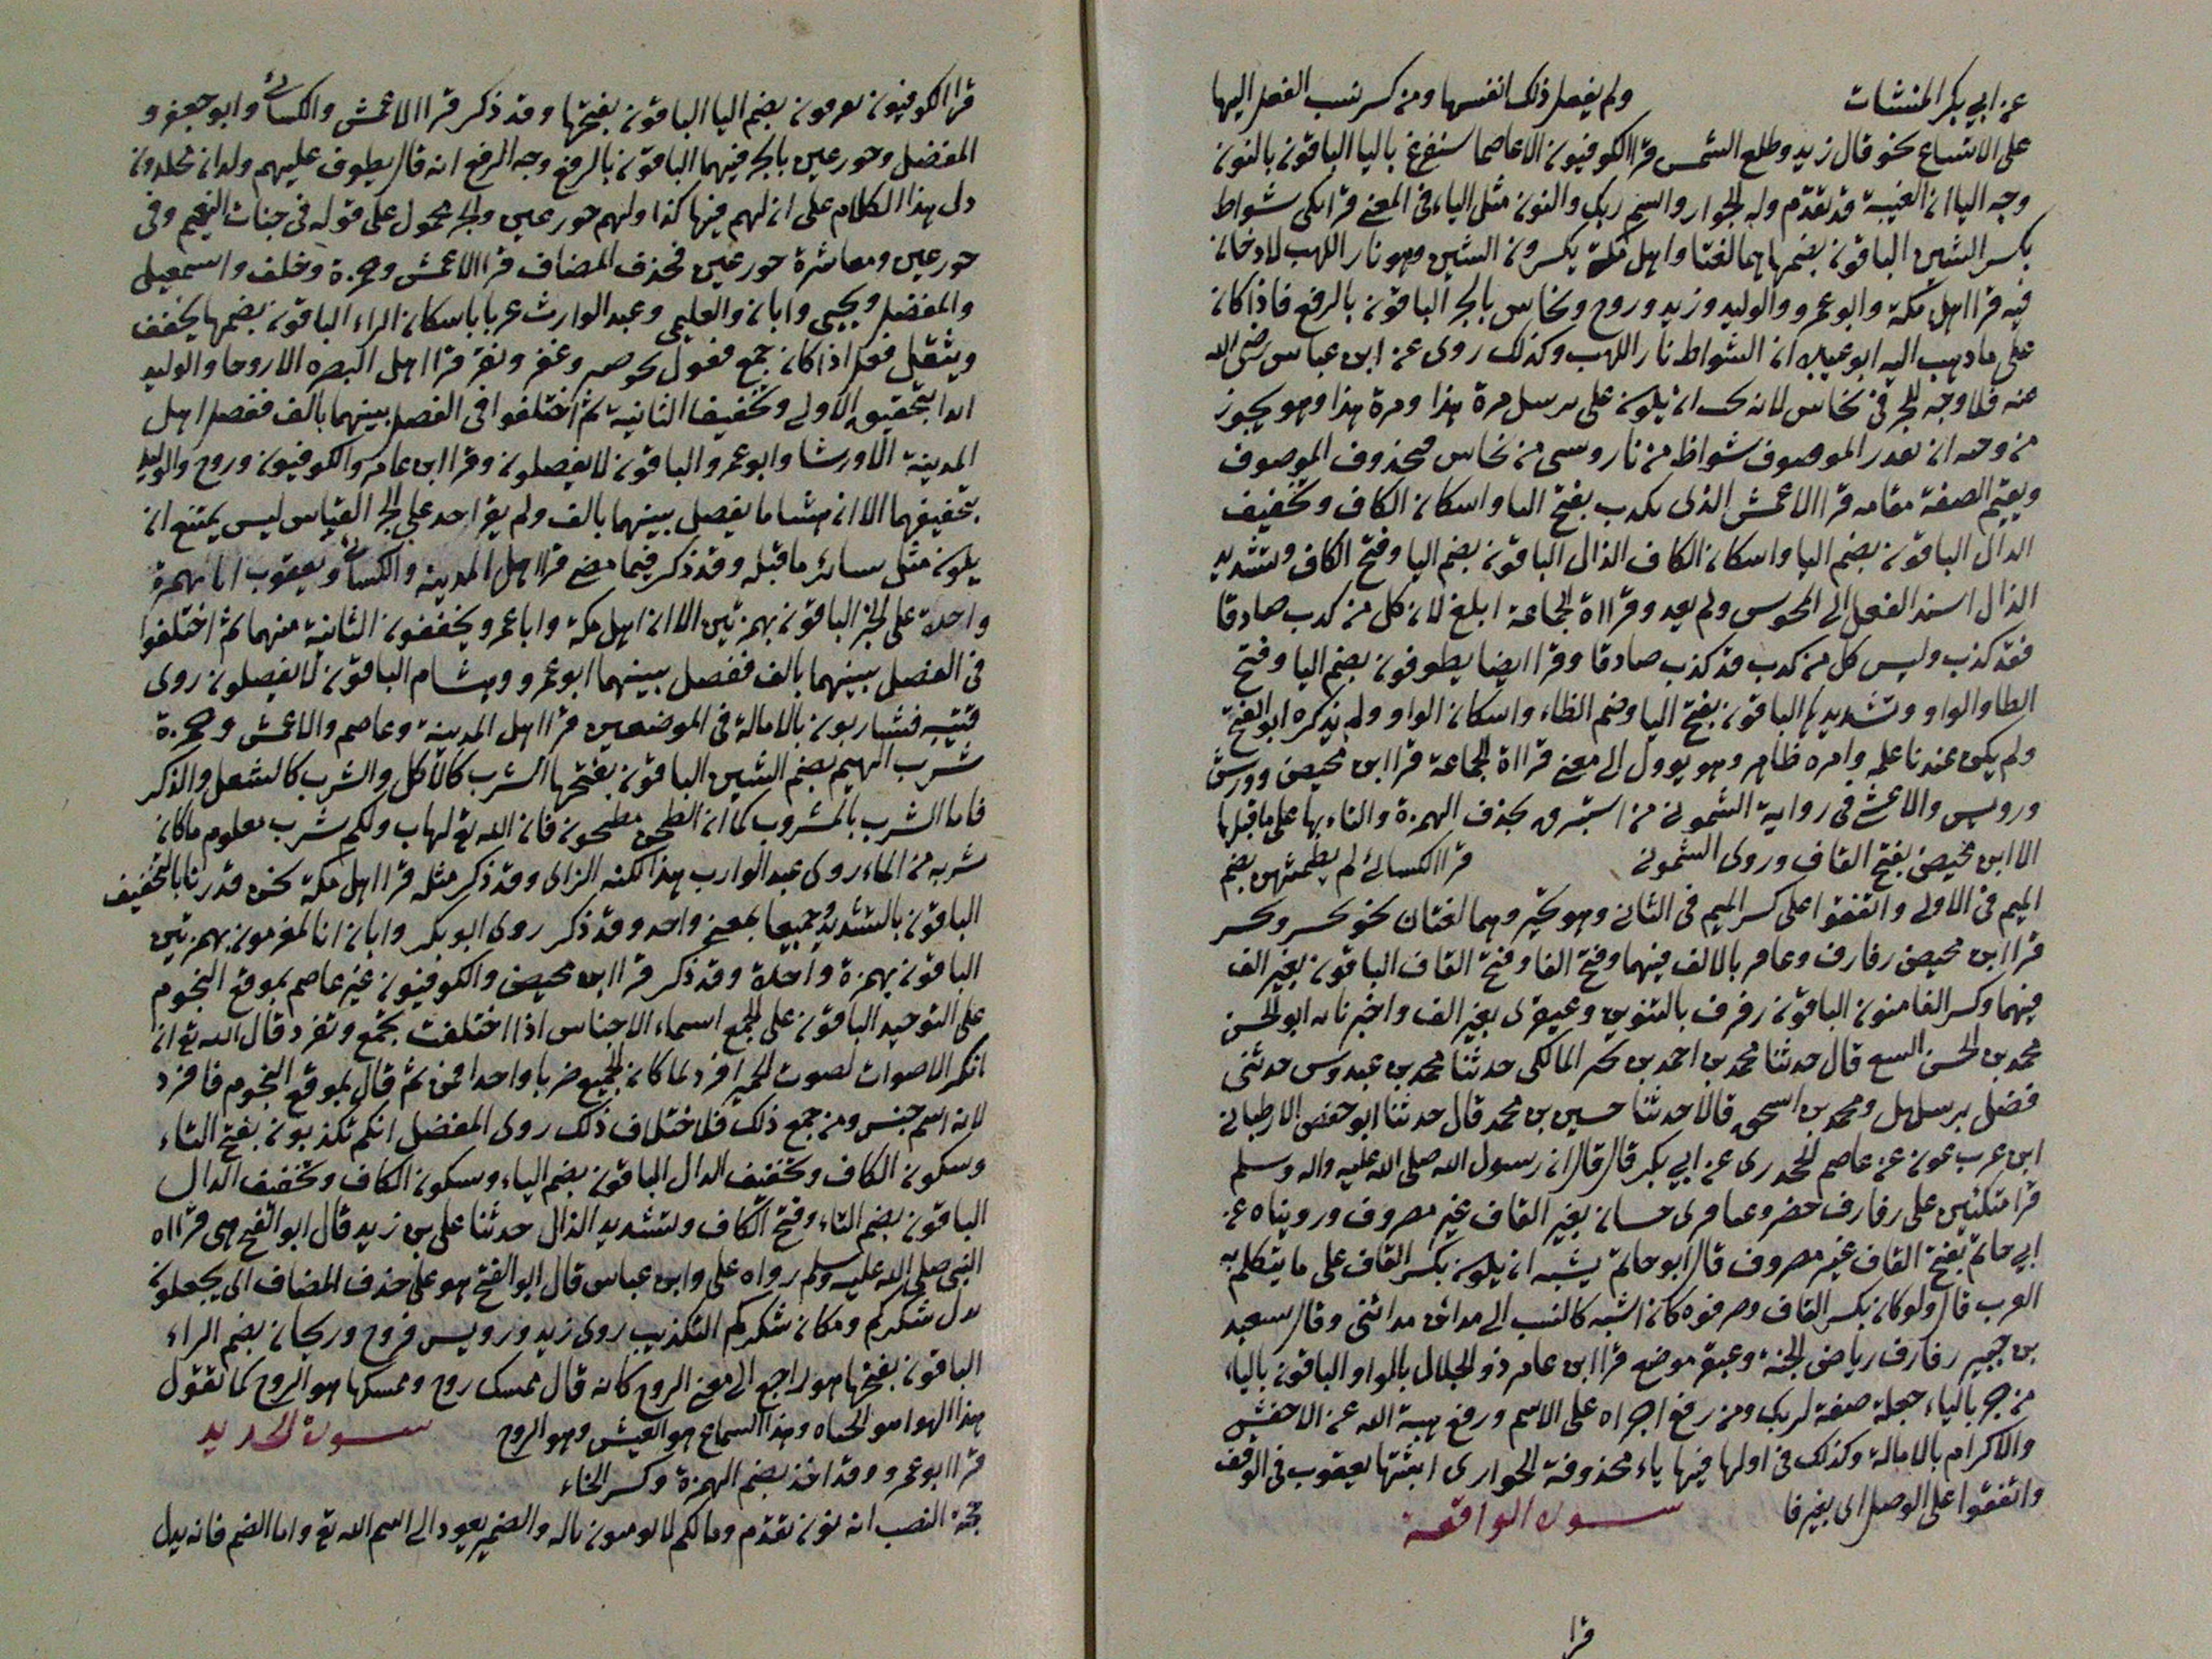 عن ابي بكر المنشات ولم يفعل ذلك انفسها ومن كسر نسب الفعل اليها
على الاتساع نحو قال زيد وطلع الشمس قرا الكوفيون الا عاصما سنفرغ باليا الباقون بالنون
وجه اليا ان الغيبة قد تقدم وله الجوار واسم ربك والنون مثل الياء في المعنى قرا مكى شواظ
بكسر الشين الباقون بضمها هما لغتا واهل مكة يكسرون الشين وهو نار اللهب لا دخان
فيه قرا اهل مكة وابو عمرو والوليد وزيد وروح ونحاس بالجر الباقون بالرفع فاذا كان
على ما ذهب اليه ابو عبيد ان الشواظ نار اللهب وكذلك روى عن ابن عباس رضى الله
عنه فلا وجه للجر في نحاس لانه ان يكون على مرسل مرة هذا ومرة هذا وهو يجوز
من وجه ان تقدر الموصوف شواظ من نار وسى من نحاس فحذوف الموصوف
ويقيم الصفة مقامه قرا الاعمش الذى يكدب بفتح اليا واسكان الكاف وتخفيف
الدال الباقون بضم اليا واسكان الكاف الذال الباقون بضم اليا وفتح الكاف وتشديد
الذال اسند الفعل الى ولم يعد وقراة الجماعة ابلغ لان كل من كدب صادقا
فقد كذب وليس كل من كدب قد كذب صادقا وقرا ايضا يطوفون بضم اليا وفتح
الطا والواو وتشديدها الباقون بفتح اليا وضم الطاء واسكان الواو ولم يذكره ابو الفتح
ولم يكن عندنا علمه وامره ظاهر وهو يوول الى معنى قراة الجماعة قرا ابن محيصن وورش
ورويس والاعشى في رواية الشمونى من استبرق بحذف الهمزة والقاء بها على ما قبلها
الا ابن محيصن بفتح القاف وروى الشمونى قرا الكسائى لم يطمثهن بضم
الميم في الاولى واتفقوا على كسر الميم في الثانى وهو تخير وهما لغتان نحو
قرا ابن محيصن رفارف وعامر بالالف فيهما وفتح الفا وفتح القاف الباقون بغير الف
فيهما وكسر الفا منون الباقون رفرف بالتنوين وعبقرى بغير الف واخبرنا به ابو الحسن
محمد بن الحسن قال حدثنا محمد بن احمد بن المالكى حدثنا محمد بن عبدوس حدثنى
فضل ومحمد بن اسحق قالا حدثنا حسين بن محمد قال حدثنا ابو حفص الارطبانى
ابن عون عن عاصم الجحدرى عن ابي بكر قال قال ان رسول الله صلى الله عليه واله وسلم
قرا متكئين على رفارف خضر وعباقرى حسان بغير القاف غير مصروف ورويناه عن
ابي حاتم بفتح القاف غير مصروف قال ابو حاتم يشبه ان يكون بكسر القاف على ما يتكلم به
العرب قال ولو كان بكسر القاف وصرفوه كان اشبه كالنسب الى مدائن مدائنى وقال سعيد
بن جبير رفارف رياض الجنة وعبقر موضع قرا ابن عامر ذو الجلال بالواو الباقون بالياء
من جر بالياء جعله صفة لربك ومن رفع اجراه على الاسم ورفع هيبة الله عن الاخفش
والاكرام بالامالة وكذلك في اولها فيها ياء محذوفة الجوارى ابثتها يعقوب في الوقف
واتفقوا على الوصل اى بغير فا سورة الواقعة
قرا
قرا الكوفيون بضم اليا الباقون بفتحها وقد ذكر قرا الاعمش والكسائى وابو جعفر و
المفضل وحور عين بالجر فيهما الباقون بالرفع وجه الرفع انه قال يطوف عليهم ولدان مخلدون
دل هذا الكلام على ان لهم فيها كذا ولهم حور عين والجر محمول على قوله في جنات النعيم وفى
حور عين ومعاشرة حور عين فحذف المضاف قرا الاعمش وحمزة وخلف واسمعيل
والمفضل ويحيى وابان والعليمى وعبد الوارث عربا باسكان الراء الباقون بضمها يخفف
ويثقل فعل اذا كان جمع فعول نحو صبر وغفر قرا اهل البصره الا روحا والوليد
ائدا بتحقيق الاولى وتخفيف الثانية ثم اختلفوا فى الفصل بينهما بالف ففصل اهل
المدينة الا ورشا وابو عمرو الباقون لا يفصلون وقرا ابن عامر والكوفيون وروح والوليد
بتحقيقهما الا ان هشاما يفصل بينهما بالف ولم يقرا احد على الجر القياس ليس يمتنع ان
يكون مثل سائر ما قبله وقد ذكر فيما مضى قرا اهل المدينة والكسائى ويعقوب انا بهمزة
واحدة على الخبر الباقون بهمزتين الا ان اهل مكة وابا عمرو يخففون الثانية منهما ثم اختلفوا
فى الفصل بينهما بالف ففصل بينهما ابو عمرو وهشام الباقون لا يفصلون روى
قتيبه فشاربون بالامالة فى الموضعين قرا اهل المدينة وعاصم والاعمش وحمزة
شرب الهيم بضم الشين الباقون بفتحها الشرب كالاكل والشرب كالشعل والذكر
فاما الشرب بالمشروب كما ان الطحن مطحون فان الله تع لهاب ولكم شرب معلوم ما كان
شربه من الماء روى عبد الوارب هذا لكنه الزاى وقد ذكر مثله قرا اهل مكة نحن قدرنا بالتخفيف
الباقون بالتشديد وجميعا بمعنى واحد وقد ذكر روى ابو بكر وابان انا لمغرمون بهمزتين
الباقون بهمزة واحدة وقد ذكر قرا ابن محيصن والكوفيون غير عاصم بموقع النجوم
على التوحيد الباقون على الجمع اسماء الاجناس اذا اختلفت تجمع وتفرد قال الله تع ان
انكر الاصوات لصوت الحمير افرد لما كان الجميع ضربا واحدا فمن ثم قال بموقع النجوم فافرد
لانه اسم جنس ومن جمع ذلك فلاختلاف ذلك روى المفضل انكم تكذبون بفتح التاء
وسكون الكاف وتخفيف الدال الباقون بضم الياء وسكون الكاف وتخفيف الدال
الباقون بضم التاء وفتح الكاف وتشديد الذال حدثنا على بن زيد قال ابو الفتح هى قراه
النبى صلى الله عليه وسلم رواه على وابن عباس قال ابو الفتح هو على حذف المضاف اى يجعلون
بدل شكركم ومكان شكركم التكذيب روى زيد ورويس فروح وريحان بضم الراء
الباقون بفتحها هو راجع الى معنى الروح كانه قال ممسك روح وممسكها هو الروح كما تقول
هذا الهوا هو الحياه وهذا السماع هو العيش وهو الروح سورة الحديد
قرا ابو عمرو وقد اخذ بضم الهمزة وكسر الخاء
حجة النصب انه نون تقدم ومالكم لا تومنون بالله والضمير يعود الى اسم الله تع واما الضم فانه يدل